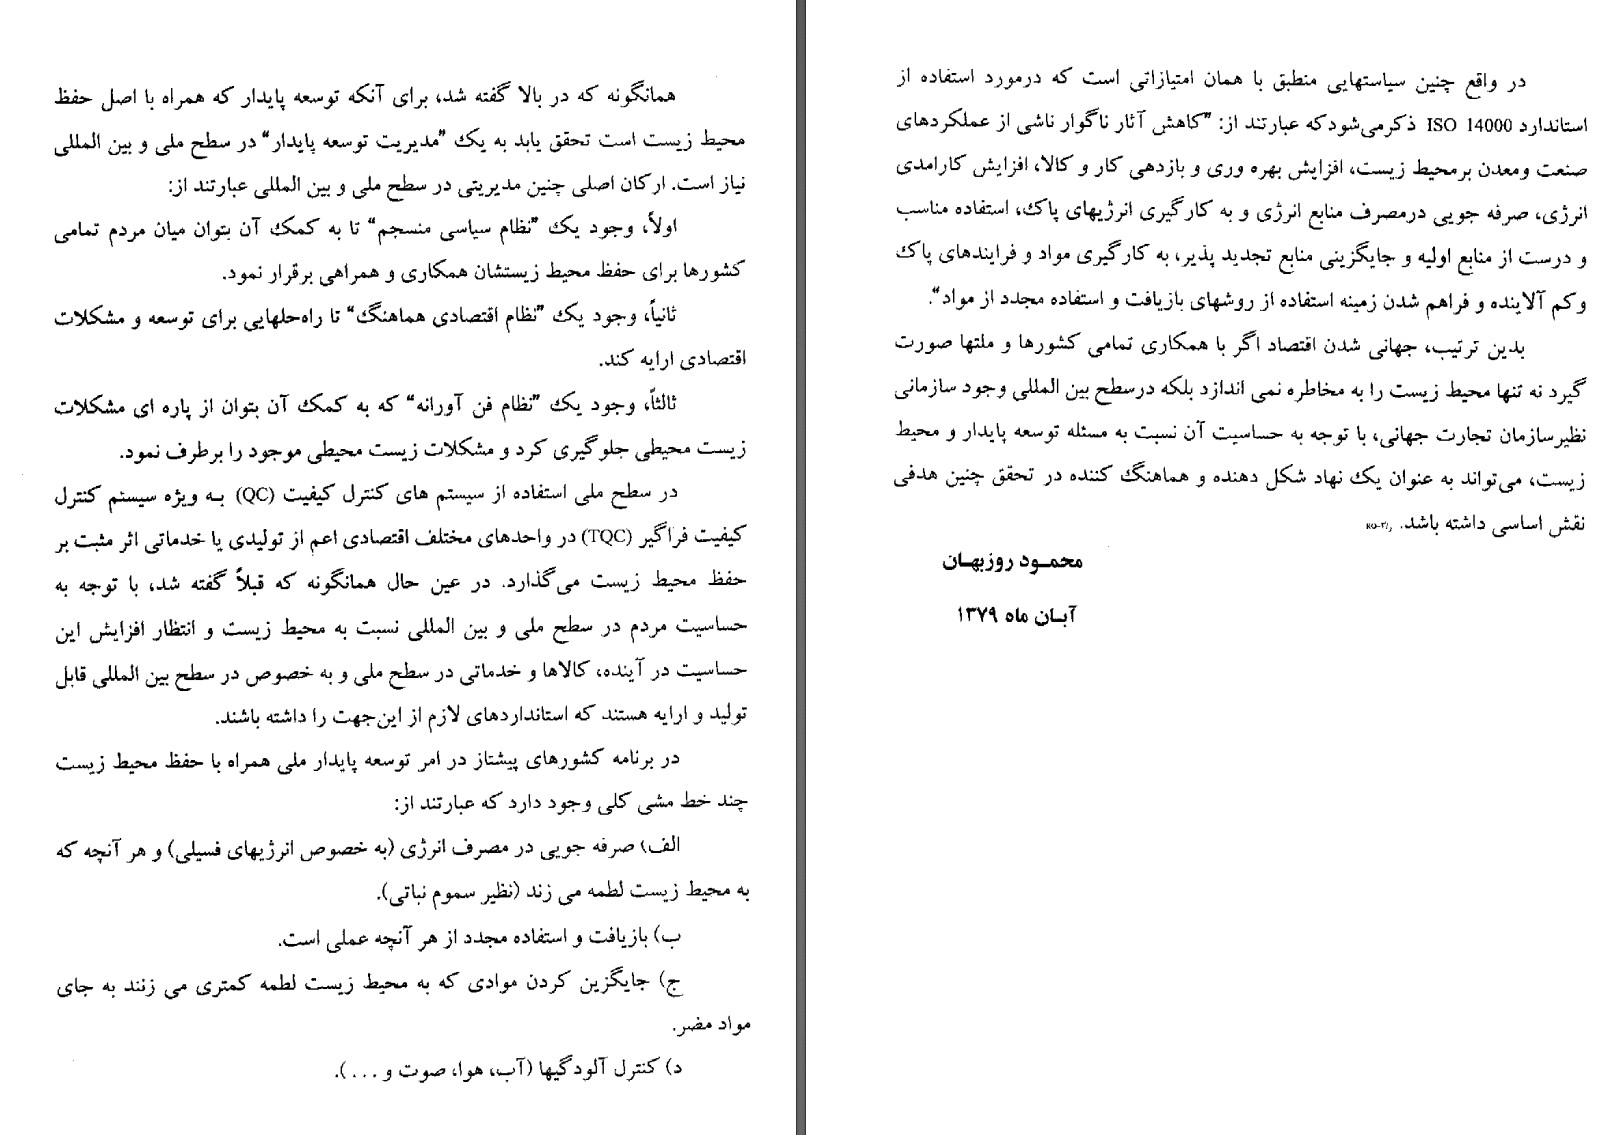 همانگونه که در بالا گفته شد، برای آنکه توسعه پایدار که همراه با اصل حفظ
محیط زیست است تحقق یابد به یک "مدیریت توسعه پایدار" در سطح ملی و بین المللی
نیاز است. ارکان اصلی چنین مدیریتی در سطح ملی و بین المللی عبارتند از:
اولاً، وجود یک "نظام سیاسی منسجم" تا به کمک آن بتوان میان مردم تمامی
کشورها برای حفظ محیط زیستشان همکاری و همراهی برقرار نمود.
ثانیاً، وجود یک "نظام اقتصادی هماهنگ" تا راه‌حلهایی برای توسعه و مشکلات
اقتصادی ارایه کند.
ثالثاً، وجود یک "نظام فن آورانه" که به کمک آن بتوان از پاره ای مشکلات
زیست محیطی جلوگیری کرد و مشکلات زیست محیطی موجود را برطرف نمود.
در سطح ملی استفاده از سیستم های کنترل کیفیت (QC) بـه ویژه سیستم کنترل
کیفیت فراگیر (TQC) در واحدهای مختلف اقتصادی اعم از تولیدی یا خدماتی اثر مثبت بر
حفظ محیط زیست می‌گذارد. در عین حال همانگونه که قبلاً گفته شد، با توجه به
حساسیت مردم در سطح ملی و بین المللی نسبت به محیط زیست و انتظار افزایش این
حساسیت در آینده، کالاها و خدماتی در سطح ملی و به خصوص در سطح بین المللی قابل
تولید و ارایه هستند که استانداردهای لازم از این‌جهت را داشته باشند.
در برنامه کشورهای پیشتاز در امر توسعه پایدار ملی همراه با حفظ محیط زیست
چند خط مشی کلی وجود دارد که عبارتند از:
الف) صرفه جویی در مصرف انرژی (به خصوص انرژیهای فسیلی) و هر آنچه که
به محیط زیست لطمه می زند (نظیر سموم نباتی).
ب) بازیافت و استفاده مجدد از هر آنچه عملی است.
ج) جایگزین کردن موادی که به محیط زیست لطمه کمتری می زنند به جای
مواد مضر.
د) کنترل آلودگیها (آب، هوا، صوت و ...).
در واقع چنین سیاستهایی منطبق با همان امتیازاتی است که درمورد استفاده از
استاندارد ISO 14000 ذکرمی‌شودکه عبارتند از: "کاهش آثار ناگوار ناشی از عملکردهای
صنعت ومعدن برمحیط زیست، افزایش بهره وری و بازدهی کار و کالا، افزایش کارامدی
انرژی، صرفه جویی درمصرف منابع انرژی و به کارگیری انرژیهای پاک، استفاده مناسب
و درست از منابع اولیه و جایگزینی منابع تجدید پذیر، به کارگیری مواد و فرایندهای پاک
وکم آلاینده و فراهم شدن زمینه استفاده از روشهای بازیافت و استفاده مجدد از مواد".
بدین ترتیب، جهانی شدن اقتصاد اگر با همکاری تمامی کشورها و ملتها صورت
گیرد نه تنها محیط زیست را به مخاطره نمی اندازد بلکه درسطح بین المللی وجود سازمانی
نظیرسازمان تجارت جهانی، با توجه به حساسیت آن نسبت به مسئله توسعه پایدار و محیط
زیست، می‌تواند به عنوان یک نهاد شکل دهنده و هماهنگ کننده در تحقق چنین هدفی
نقش اساسی داشته باشد.
محمـود روزبهـان
آبـان ماه ۱۳۷۹